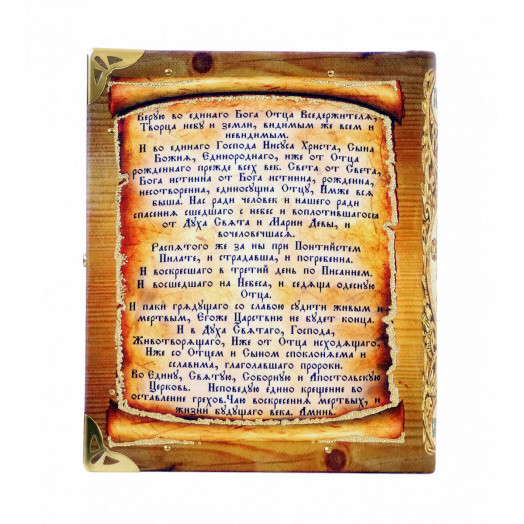 Верую во единаго Бога Отца Вседержителя,
Творца небу и земли, видимым же всем и
невидимым.
И во единаго Господа Иисуса Христа, Сына
Божия, Единороднаго, иже от Отца
рожденнаго прежде всех век. Света от Света,
Бога истинна от Бога истинна, рожденна,
несотворенна, единосущна Отцу, Имже вся
быша. Нас ради человек и нашего ради
спасения сшедшаго с небес и воплотившагося
от Духа Свята и Марии Девы, и
вочеловечшася.
Распятого же за ны при Понтийстем
Пилате, и страдавша, и погребенна.
И воскресшаго в третий день по Писанием.
И восшедшаго на Небеса, и седяща одесную
Отца.
И паки грядущаго со славою судити живым и
мертвым, Егоже Царствию не будет конца.
И в Духа Святаго, Господа,
Животворящаго, Иже от Отца исходящаго,
Иже со Отцем и Сыном споклоняема и
сславима, глаголавшаго пророки.
Во Едину, Святую, Соборную и Апостольскую
Церковь. Исповедую едино крещение во
оставление грехов,Чаю воскресения мертвых, и
жизни будущаго века. Аминь.